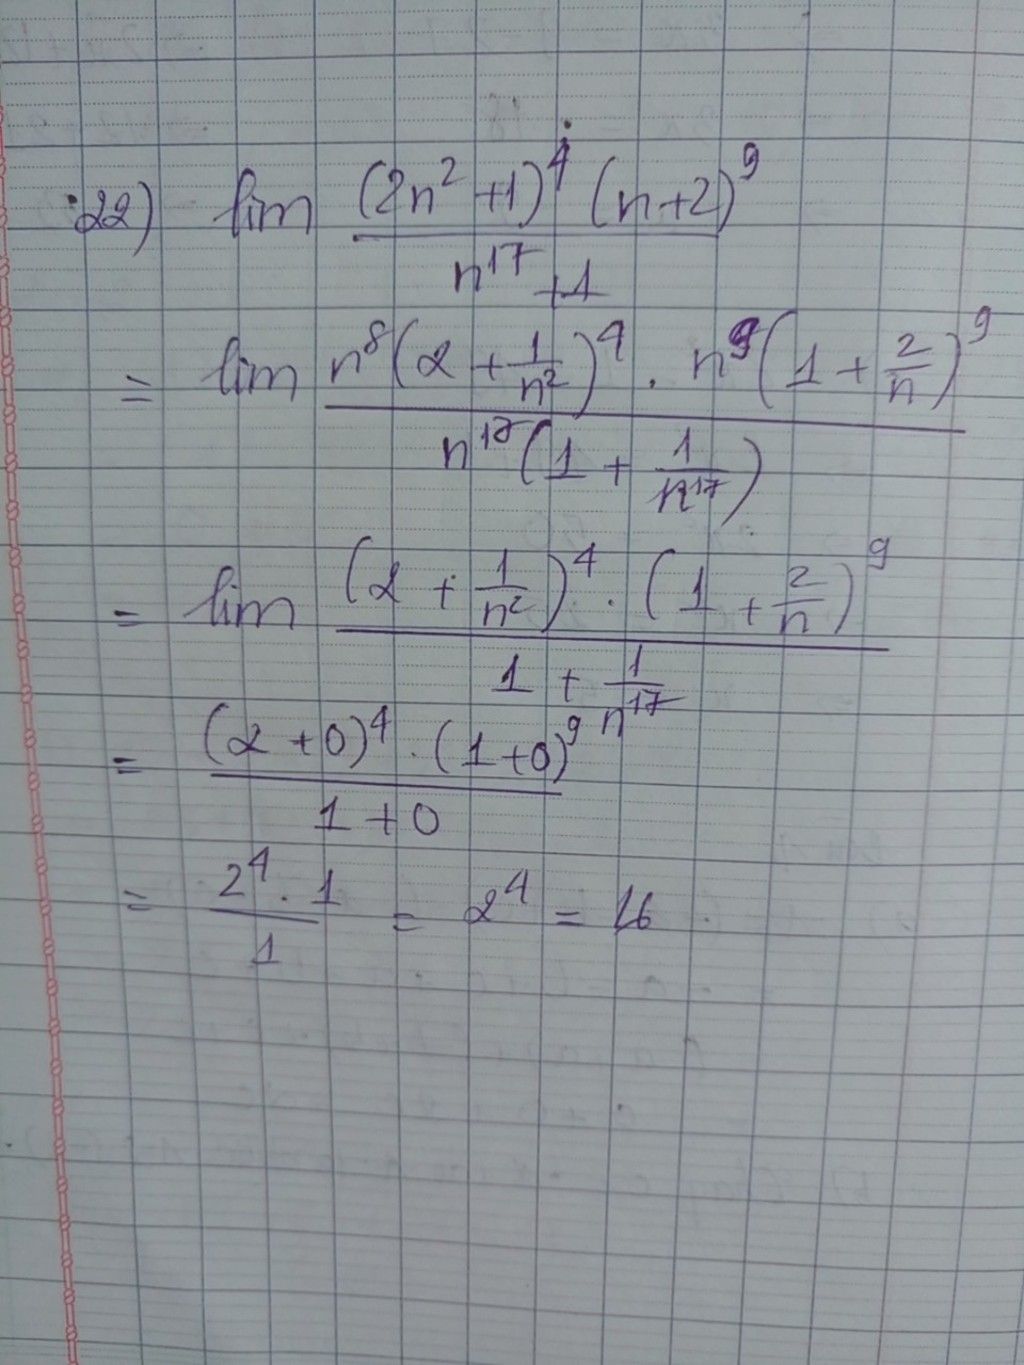 22) lim (2n² + 1)⁴ (n+2)⁹ / n¹⁷ + 1
= lim n⁸(2 + 1/n²)⁴ . n⁹(1 + 2/n)⁹ / n¹⁷(1 + 1/n¹⁷)
= lim (2 + 1/n²)⁴ . (1 + 2/n)⁹ / 1 + 1/n¹⁷
= (2 + 0)⁴ . (1+0)⁹ / 1 + 0
= 2⁴ . 1 / 1 = 2⁴ = 16